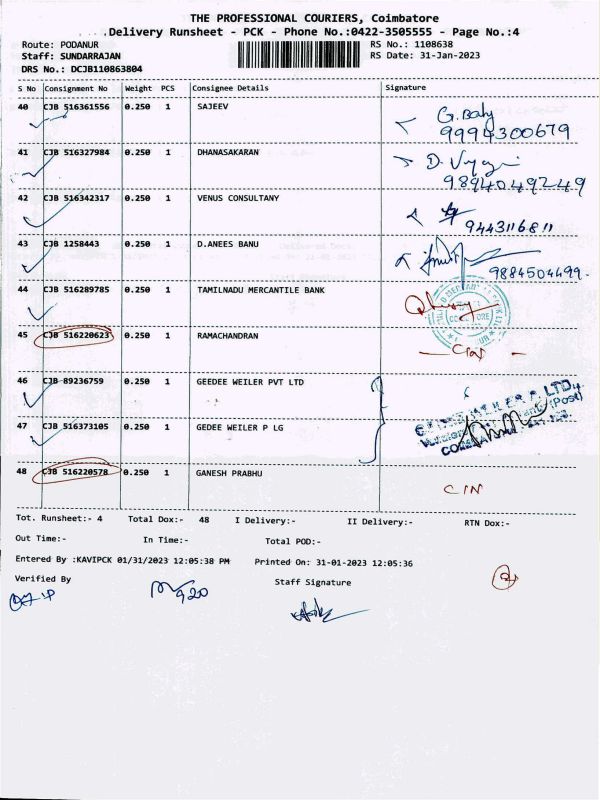 THE PROFESSIONAL COURIERS, Coimbatore
.Delivery Runsheet - PCK - Phone No.:0422-3505555 - Page No.:4
Route: PODANUR RS No.: 1108638
Staff: SUNDARRAJAN RS Date: 31-Jan-2023
DRS No.: DCJB110863804
S No Consignment No Weight PCS Consignee Details Signature
40 CJB 516361556 0.250 1 SAJEEV G. Baby
9994300679
41 CJB 516327984 0.250 1 DHANASAKARAN D.
9894049249
42 CJB 516342317 0.250 1 VENUS CONSULTANY
9443116811
43 CJB 1258443 0.250 1 D.ANEES BANU
9884504499.
44 CJB 516289785 0.250 1 TAMILNADU MERCANTILE BANK
45 CJB 516220623 0.250 1 RAMACHANDRAN
- CIN -
46 CJB 89236759 0.250 1 GEEDEE WEILER PVT LTD
47 CJB 516373105 0.250 1 GEDEE WEILER P LG
48 CJB 516220578 0.250 1 GANESH PRABHU
CIN
Tot. Runsheet:- 4 Total Dox:- 48 I Delivery:- II Delivery:- RTN Dox:-
Out Time:- In Time:- Total POD:-
Entered By :KAVIPCK 01/31/2023 12:05:38 PM Printed On: 31-01-2023 12:05:36
Verified By Staff Signature
920